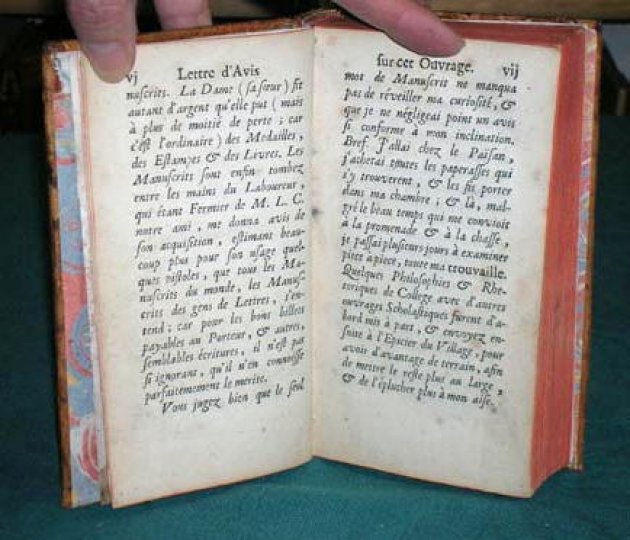 vj Lettre d'Avis
nuscrits. La Dame (sa sœur) fit
autant d'argent qu'elle put (mais
à plus de moitié de perte; car
c'est l'ordinaire) des Medailles,
des Estampes & des Livres. Les
Manuscrits sont enfin tombez
entre les mains du Laboureur,
qui étant Fermier de M. L. C.
nôtre ami, me donna avis de
son acquisition, estimant beau-
coup plus pour son usage quel-
ques pistoles, que tous les Ma-
nuscrits du monde, les Manus-
crits des gens de Lettres, s'en-
tend; car pour les bons billets
payables au Porteur, & autres,
semblables écritures, il n'est pas
si ignorant, qu'il n'en connoisse
parfaitement le merite.
Vous jugez bien que le seul
sur cet Ouvrage. vij
mot de Manuscrit ne manqua
pas de réveiller ma curiosité, &
que je ne négligeai point un avis
si conforme à mon inclination.
Bref J'allai chez le Païsan,
j'achetai toutes les paperasses qui
s'y trouverent, & les fis porter
dans ma chambre; & là, mal-
gré le beau temps qui me convioit
à la promenade & à la chasse,
je passai plusieurs jours à examiner
piece à piece, toute ma trouvaille.
Quelques Philosophies & Rhe-
toriques de College avec d'autres
ouvrages Scholastiques furent d'a-
bord mis à part, & envoyez en-
suite à l'Epicier du Village, pour
avoir d'avantage de terrain, afin
de mettre le reste plus au large,
& de l'éplucher plus à mon aise.